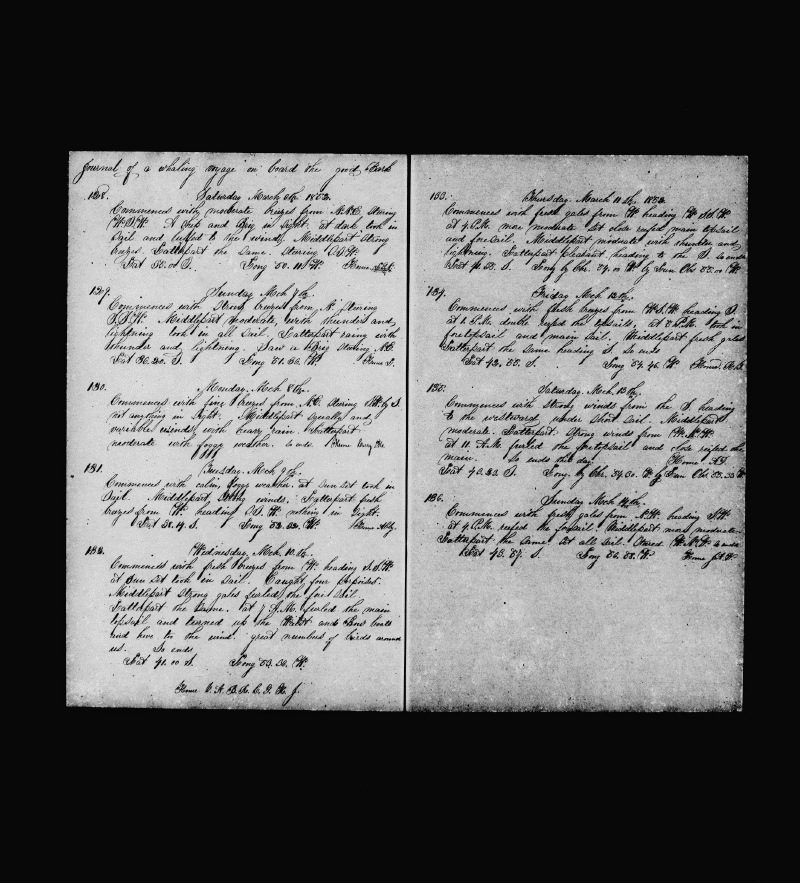 Journal of a whaling voyage on board the good Bark
128. Saturday March 6th 1852
Commences with moderate breezes from N.N.E. stering
W.S.W. A ship and Brig in sight. at dark took in
sail and luffed to the wind. Middlepart strong
breezes. Latterpart the same. stering S.W.
Lat 35.00 S. Long 50. W.
129. Sunday Mch 7th
Commences with strong breezes from N. stering
S.S.W. Middlepart moderate, with thunder and
lightning took in all sail. Latterpart rainy with
thunder and lightning. Saw a Brig stering N.E.
Lat 36.20. S. Long 51.36. W.
130. Monday. Mch 8th
Commences with fine breezes from N.E. stering W. by S
not anything in sight. Middlepart squally and
variable winds with heavy rain. Latterpart
moderate with foggy weather. So ends.
131. Tuesday. Mch 9th
Commences with calm, foggy weather at sun set took in
sail. Middlepart, strong winds. Latterpart fresh
breezes from W. heading S.W. nothing in sight.
Lat 38.19. S. Long 53. W.
132. Wednesday. Mch. 10th
Commences with fresh breezes from W. heading S.S.W.
at sun set took in sail. Caught four porpoises.
Middlepart strong gales furled the fore sail
Latterpart the same. at 7 A.M. furled the main
topsail and turned up the Waist and Bow boats
and hove to the wind. great numbers of birds around
us. So ends.
Lat 41.10 S. Long 53.30. W.
133. Thursday. March 11th. 1852
Commences with fresh gales from W heading W.S.W.
at 4 P.M. more moderate set close reefed main topsail
and foresail. Middlepart moderate with thunder and
lightning. Latterpart pleasant, heading to the S. So ends
Lat 41. S. Long by Chr. 54.10 W by Lun Obs W.
134. Friday Mch 12th.
Commences with fresh breezes from W.S.W. heading S.
at 2 P.M. double reefed the topsails. at P.M. took in
foretopsail and main sail. Middlepart fresh gales
Latterpart the same heading S. so ends
Lat 43. S. Long 54.46. W.
135. Saturday. Mch. 13th.
Commences with strong winds from the S. heading
to the westward, under short sail. Middlepart
moderate. Latterpart. strong winds from W.S.W.
at 11. A.M. furled the foretopsail and close reefed the
main. So ends the day.
Lat 43.23. S. Long. by Chr. 54.30. W by Lun Obs 53.30 W
136. Sunday Mch 14th.
Commences with fresh gales from N.W. heading S.W.
at 4 P.M. reefed the foresail. Middlepart more moderate.
Latterpart the same. set all sail. Stered W.N.W. So ends
Lat 43.57. S. Long W.